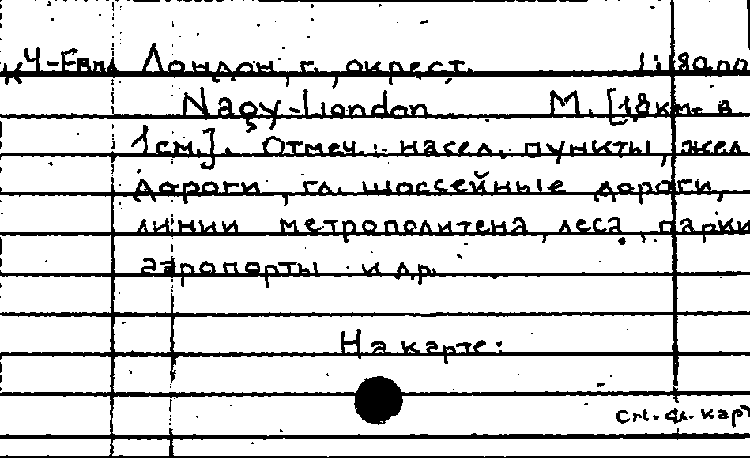 К4-Евр. Лондон, г., окрест. 1:180000
Nagy-London М. [1,8 км. в
1 см.]. Отмеч.: насел. пункты, жел.
дороги, гл. шоссейные дороги,
линии метрополитена, леса, парки
аэропорты и др.
На карте:
См. сл. карт